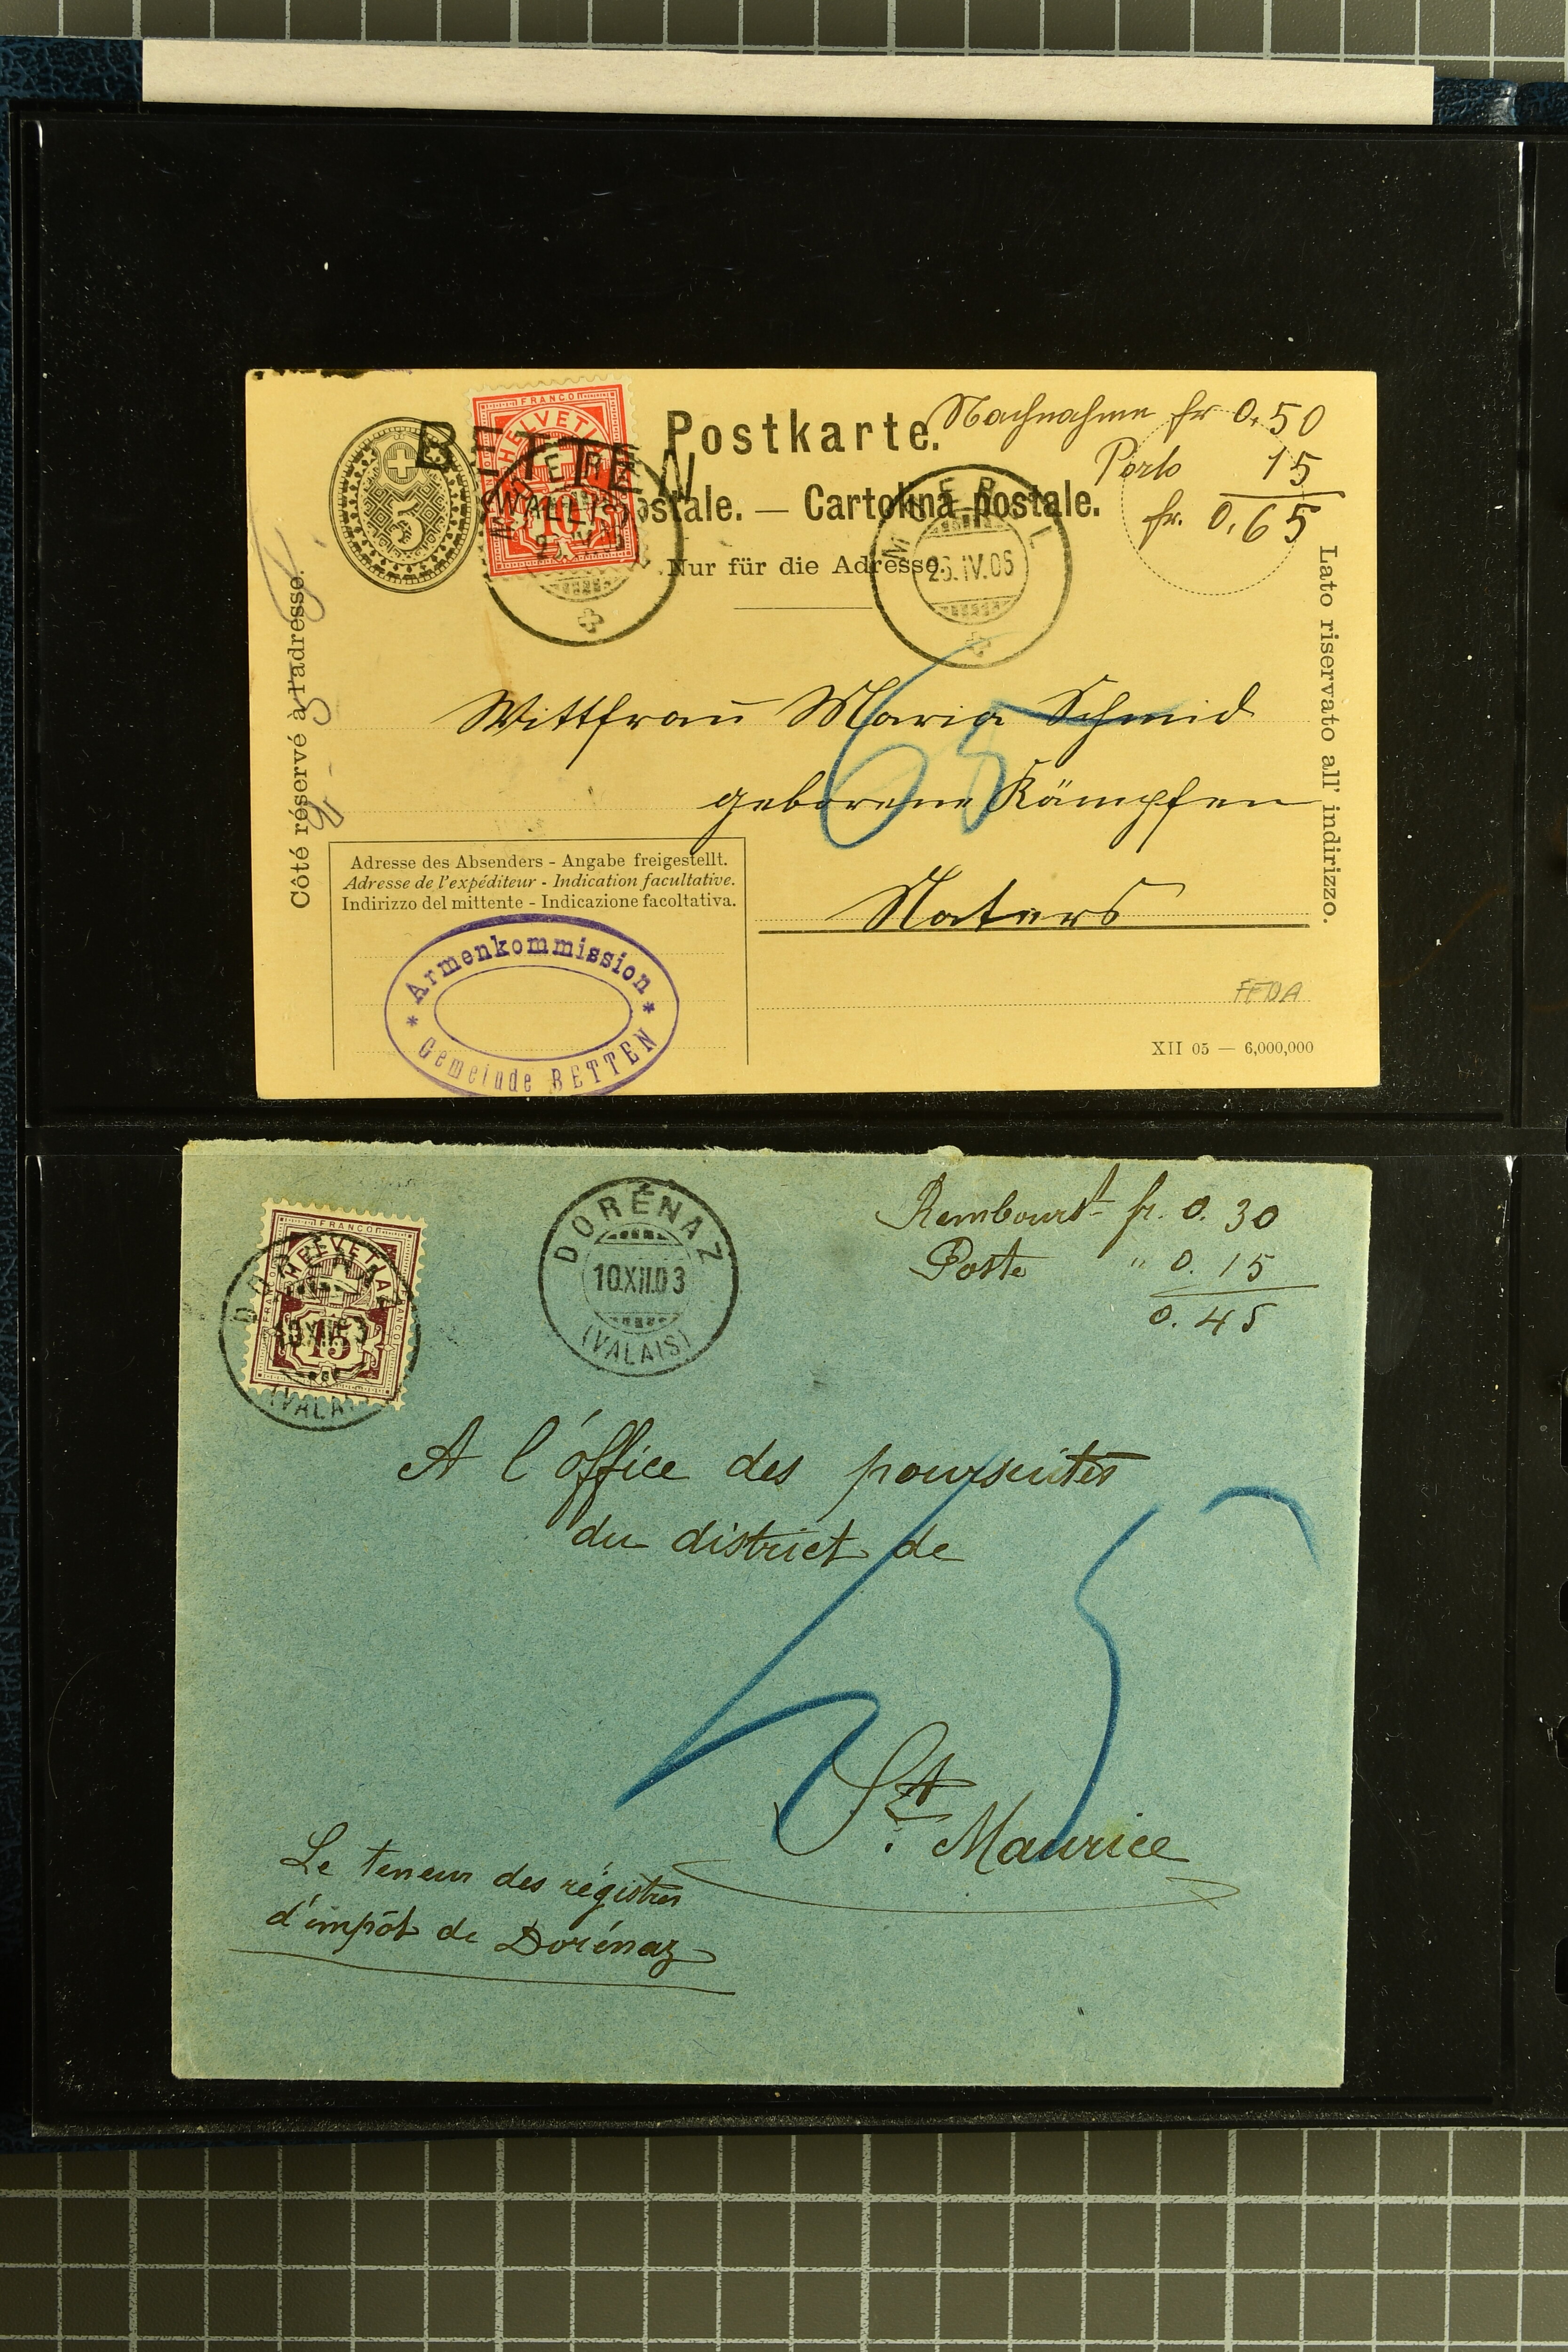 Postkarte.
Nachnahme fr 0,50
Porto 15
fr. 0,65
BETTEN
FRANCO
HELVETI
10
(WALLIS)
ostale. — Cartolina postale.
5
Nur für die Adresse.
26.IV.06
Côté réservé à l'adresse.
Lato riservato all' indirizzo.
Wittfrau Maria Schmid
geborene Kämpfen
Naters
65
Adresse des Absenders - Angabe freigestellt.
Adresse de l'expéditeur - Indication facultative.
Indirizzo del mittente - Indicazione facoltativa.
* Armenkommission *
Gemeinde BETTEN
XII 05 — 6,000,000
FRANCO
HELVETIA
15
DORÉNAZ
(VALAIS)
DORÉNAZ
10.XII.03
(VALAIS)
Rembourst fr. 0.30
Poste " 0.15
0.45
A l'office des poursuites
du district de
45
St. Maurice
Le teneur des régistres
d'impôt de Dorénaz